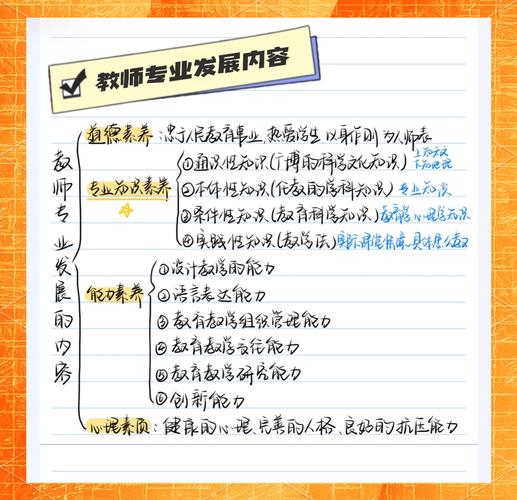 教师专业发展内容
教师专业发展的内容
道德素养：忠于人民教育事业,热爱学生 以身作则 为人师表
专业知识素养
①通识性知识(广博的科学文化知识) 上知天文 下知地理
②本体性知识(任教的学科知识) 专业知识
③条件性知识(教育科学知识) 教育学心理学知识
④实践性知识(教学法) 实际课堂情境 具体怎么教
能力素养
①设计教学的能力
②语言表达能力
③教育教学组织管理能力
④教育教学交往能力
⑤教育教学研究能力
⑥创新能力
心理素质：健康的心理、完美的人格、良好的抗压能力